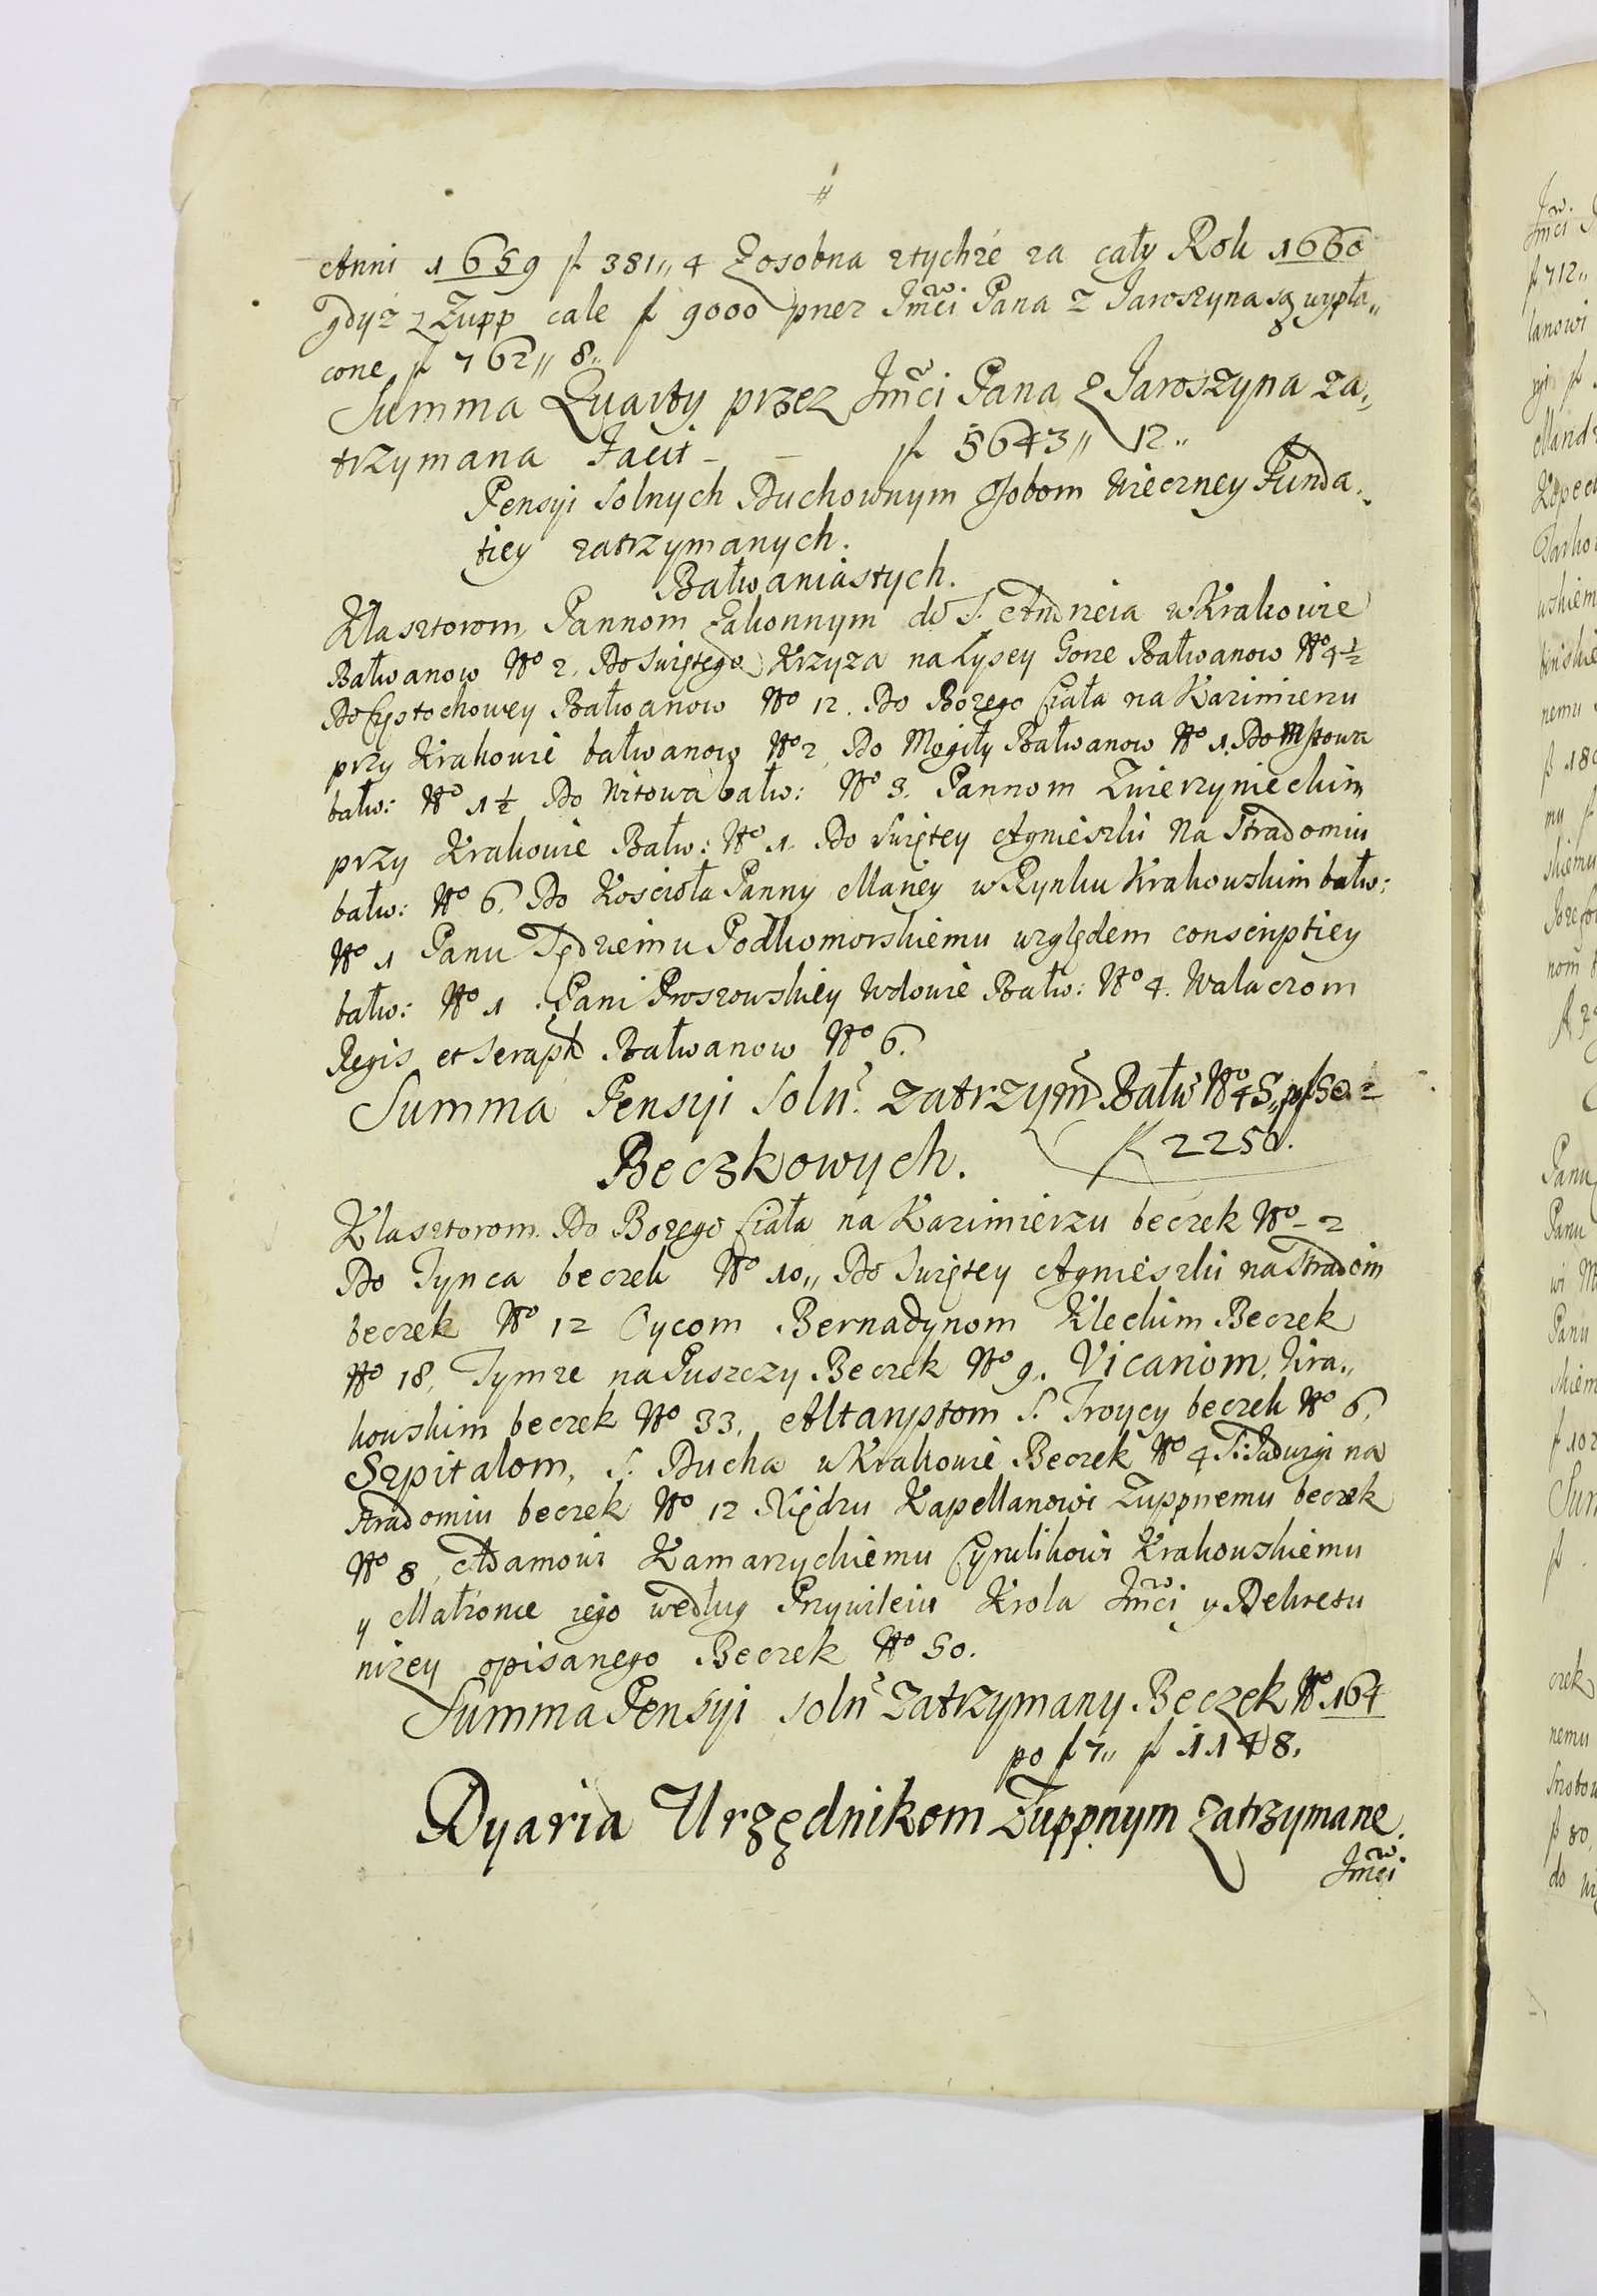 Anni 1659 f 381,, 4 Zosobna ztychże za cały Rok 1660
gdyż z Zupp cale f 9000 przez Jmci Pana z Jaroszyna są wypła,,
cone f 762,, 8,,
Summa Quarty przez Jmci Pana z Jaroszyna za,,
trzymana Facit - - f 5643,, 12,,
Pensyi Solnych Duchownym Osobom Wieczney Funda,,
tiey zatrzymanych.
Bałwaniastych.
Klasztorom, Pannom Zakonnym do S. Andrzeia w Krakowie
Bałwanow No 2. Do Swiętego Krzyza na Łysey Gorze Bałwanow No 4 ½
Do Częstochowey Bałwanow No 12. Do Bozego Ciała na Kazimierzu
przy Krakowie bałwanow No 2, Do Mogiły Bałwanow No 1. Do Mstowa
bałw: No 1 ½ Do Witowa bałw: No 3. Pannom Zwierzynieckim
przy Krakowie Bałw: No 1. Do Swiętey Agnieszki Na Stradomiu
bałw: No 6. Do Koscioła Panny Mariey w Rynku Krakowskim bałw:
No 1 Panu Sędziemu Podkomorskiemu względem conscriptiey
bałw: No 1. Pani Proszowskiey Wdowie Bałw: No 4. Walaczom
Regis et Seraph Bałwanow No 6.
Summa Pensyi Soln. zatrzym Bałw No 45,, po f 50. =
f 2250.
Beczkowych.
Klasztorom. Do Bozego Ciała na Kazimierzu beczek No - 2
Do Tynca beczek No 10,, Do Swiętey Agnieszki na Stradom
beczek No 12 Oycom Bernadynom Kleckim Beczek
No 18, Tymze na Puszczy Beczek No 9. Vicariom, Kra,,
kowskim beczek No 33, Altarystom S. Troycy beczek No 6,
Szpitalom, S. Ducha w Krakowie Beczek No 4 S: Jadwigi na
Stradomiu beczek No 12 Xiędzu Kapellanowi Zuppnemu beczek
No 8, Adamowi Kamarzyckiemu Cyrulikowi Krakowskiemu
y Małzonce iego według Przywileiu Krola Jmci y Dekretu
nizey opisanego Beczek No 50.
Summa Pensyi soln Zatrzymany Beczek No 164
po f 7,, f 1148.
Dyaria Urzędnikom Zuppnym zatrzymane.
Jmci